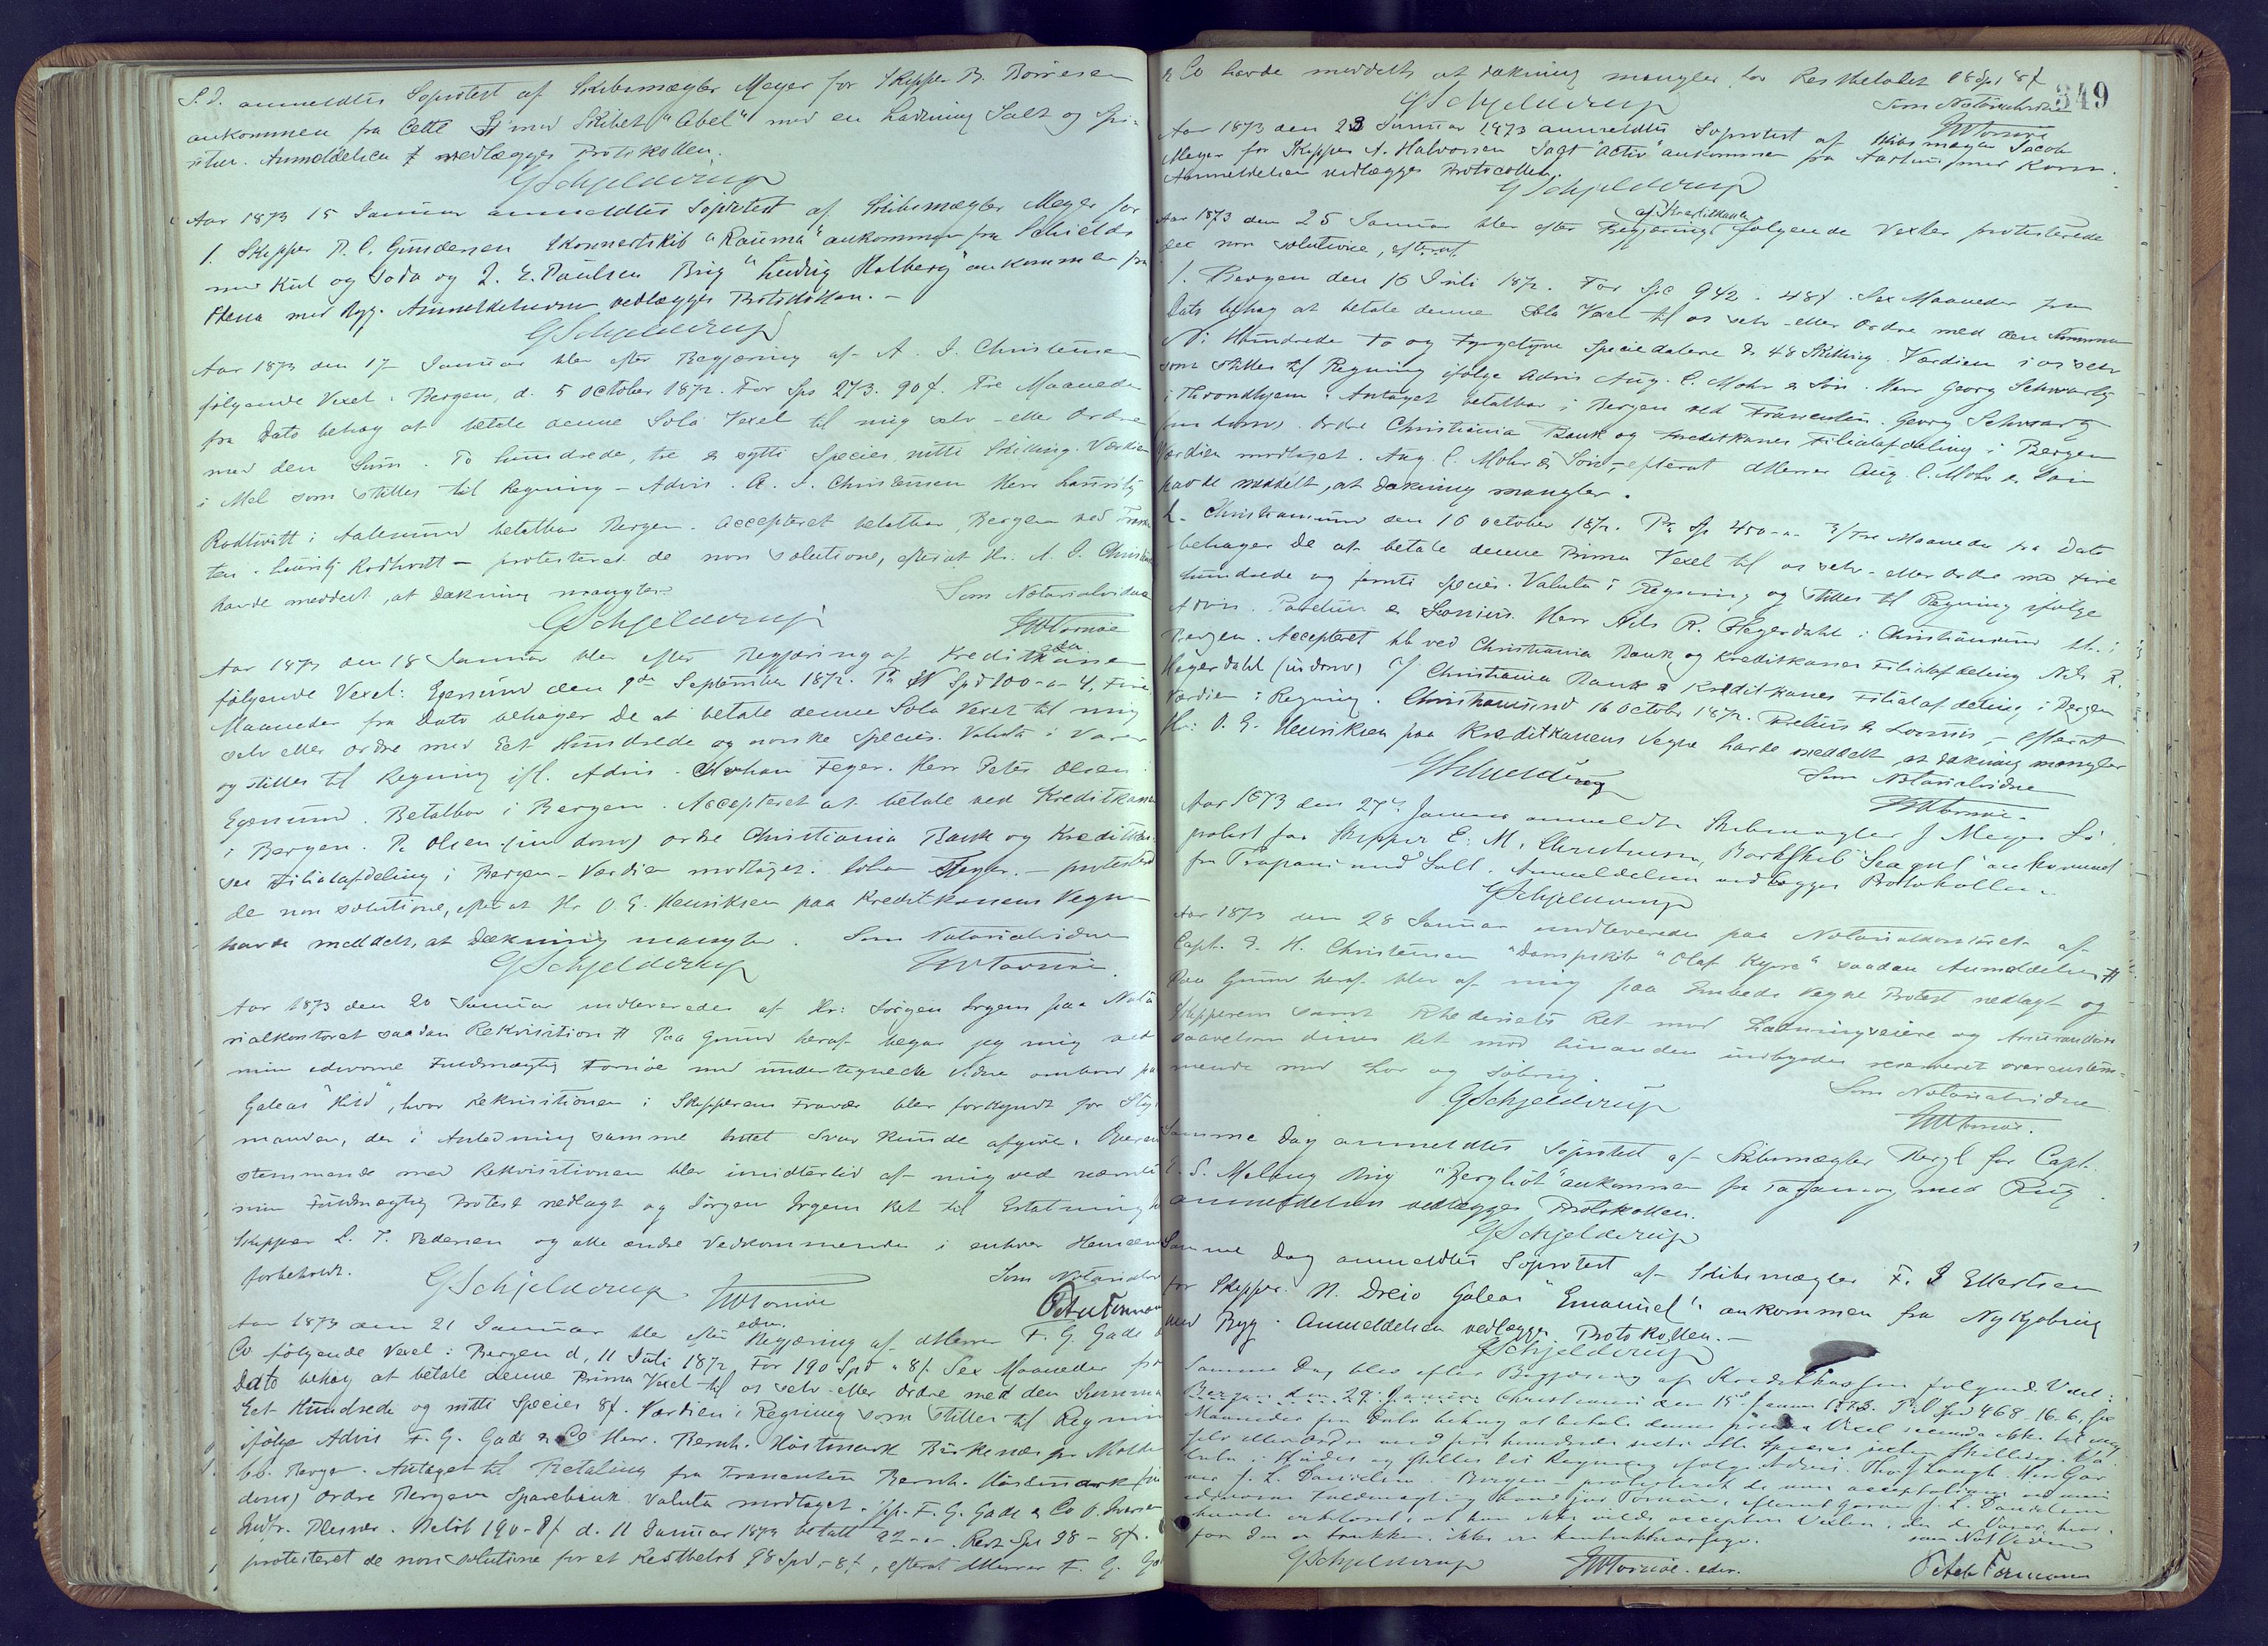 S. D. anmeldtes Soprotest af Skibsmægler Meyer for Skipper B. Börresen
ankommen fra Cette med Skibet "Abel" med en Ladning Salt og Spi-
ritus. Anmeldelsen vedlægges Protokollen.
GSchjelderup
Aar 1873 15 Januar anmeldtes Soprotest af Skibsmægler Meyer for
1. Skipper R. C. Gundersen Skonnertskib "Rauma" ankommen fra Schields
med Kul og Soda og J. E. Paulsen Brig "Ludvig Holberg" ankommen fra
med Byg. Anmeldelserne vedlægges Protokollen. -
GSchjelderup
Aar 1873 den 17 Januar blev efter Begjæring af A. J. Christensen
følgende Vexel: Bergen, d. 5 October 1872. For Sps 273. 90 f. Tre Maaneder
fra Dato behag at betale denne Sola Vexel til mig selv eller Ordre
med den Sum. To hundrede, tre & sytti Species nitti Skilling. Værdien
i Mel som stilles til Regning - Advis. A. J. Christensen Herr Lauritz
Rodtwitt i Aalesund betalbar Bergen. Accepteret betalbar Bergen ved
ten. Lauritz Rodtwitt - protesteret de non solutione, efterat Hr. A. J. Christensen
havde meddelt, at Dækning mangler.
Som Notarialvidne
GSchjelderup
MTornöe
Aar 1873 den 18 Januar blev efter Begjæring af Kreditkassen
følgende Vexel: Egersund den 9de September 1872. Pr Spd 100 - 4, Fire
Maaneder fra Dato behager De at betale denne Sola Vexel til mig
selv eller Ordre med Eet Hundrede og norske Species. Valuta i Varer
og stilles til Regning ifl. Advis. Johan Feyer. Herr Peter Olsen
Egersund. Betalbar i Bergen. Accepteret at betale ved Kreditkassen
i Bergen. P. Olsen (in dorso) Ordre Christiania Bank og Kreditkas-
ses Filialafdeling i Bergen - Værdien modtaget. Johan Feyer. - protesteret
de non solutione, efterat Hr O. G. Henriksen paa Kreditkassens Vegne
havde meddelt, at Dækning mangler. Som Notarialvidne
GSchjelderup
MTornöe.
Aar 1873 den 20 Januar indleveredes af Hr: Jörgen Irgens paa Nota-
rialkontoret saadan Rekvisition # Paa Grund heraf begav jeg mig ved
min edsvorne Fuldmægtig Tornöe med undertegnede Vidne ombord paa
Galeas "Hild", hvor Rekvisitionen i Skipperens Fravær blev forkyndt for Styr-
manden, der i Anledning samme intet Svar kunde afgive. Overens-
stemmende med Rekvisitionen blev imidlertid af mig ved nævnte
min Fuldmægtig Protest nedlagt og Jörgen Irgens Ret til Erstatning
Skipper L. T. Pedersen og alle andre Vedkommende i enhver Henseende
forbeholdt.
GSchjelderup MTornöe
edsv.
Som Notarialv
Peter Formann
Aar 1873 den 21 Januar blev efter Begjæring af Herrer F. G. Gade &
Co følgende Vexel: Bergen d. 11 Juli 1872 For 190 Spd " 8 f. Sex Maaneder fra
Dato behag at betale denne Prima Vexel til os selv eller Ordre med den Summa
Eet Hundrede og nitti Species 8 f. Værdien i Regning som stilles til Regning
ifölge Advis F. G. Gade & Co Herr. Bernh. Höstmark Birkenæs pr Molde
bb. Bergen. Antaget til Betaling fra Trancenten Bernh. Höstmark (in
dorso) Ordre Bergens Sparebank Valuta modtaget. pp. F. G. Gade & Co O. Iversen
Indfr. Plesner. Belöb 190 - 8 f d. 11 Januar 1873 betalt 92 - " - Rest Spd 98 - 8 f.
protesteret de non solutione for et Restbelöb 98 Spd - 8 f, efterat Herrer F. G. Gade
349
& Co havde meddelt, at Dækning mangler for Restbelöbet 98 Spd 8 f
GSchjelderup
Som Notarialvidne
MTornöe
Aar 1873 den 23 Januar 1873 anmeldtes Soprotest af Skibsmægler Jacob
Meyer for Skipper A. Halvorsen Jagt "Activ" ankommen fra Aarhus med Korn.
Anmeldelsen vedlægges Protocollen.
GSchjelderup
Aar 1873 den 25 Januar blev efter Begjæring af Kreditkassen følgende Vexler protesterede
de non solutione, efterat
1. Bergen den 16 Juli 1872. For Spc 942. 48 f. Sex Maaneder fra
Dato behag at betale denne Sola Vexel til os selv eller Ordre med den Summa
Ni Hundrede To og Fyrgetyve Speciedalere & 48 Skilling. Værdien i os selv
som stilles til Regning ifölge Advis Aug. C. Mohr & Sön. Herr Georg Schwartz
i Throndhjem. Antaget betalbar i Bergen ved Trancenten. Georg Schwartz
(in dorso). Ordre Christiania Bank og Kreditkasses Filialafdeling i Bergen
Værdien modtaget. Aug. C. Mohr & Sön - efterat Herrer Aug. C. Mohr & Sön
havde meddelt, at Dækning mangler.
2. Christiansund den 16 October 1872. Pr Sp 450 - " - 3/Tre Maaneder fra Dato
behager De at betale denne Prima Vexel til os selv eller Ordre med Fire
hundrede og femti Species. Valuta i Regning og stilles til Regning ifölge
Advis. Parelius & Lossius. Herr Nils R. Hegerdahl i Christiansund bb. i
Bergen. Accepteret bb ved Christiania Bank og Kreditkasses Filialafdeling Nils R.
Hegerdahl (in dorso) Christiania Bank & Kreditkasses Filialafdeling i Bergen
Værdien i Regning. Christiansund 16 October 1872. Parelius & Lossius, - efterat
Hr: O. G. Henriksen paa Kreditkassens Vegne havde meddelt, at Dækning mangler
GSchjelderup
Som Notarialvidne
MTornöe.
Aar 1873 den 27de Januar anmeldte Skibsmægler J Meyer Sö-
protest for Skipper E. M. Christensen, Barkskib "Seagul" ankommet
fra Trapani med Salt. Anmeldelsen vedlægges Protokollen.
GSchjelderup
Aar 1873 den 28 Januar indleveredes paa Notarialkontoret af
Capt. J. H. Christensen "Dampskib "Olaf Kyrre" saadan Anmeldelse #
Paa Grund heraf blev af mig paa Embeds Vegne Protest nedlagt og
Skipperens samt Rhederiets Ret mod Ladningseiere og Assurandeurer
saavelsom disses Ret mod hinanden indbyrdes reserveret overensstem-
mende med Lov og Söbrug.
GSchjelderup
Som Notarialvidne
MTornöe.
Samme Dag anmeldtes Söprotest af Skibsmægler Bergh for Capt.
S. Meling Brig "Bergliot" ankommen fra Taganrog med Rug.
Anmeldelsen vedlægges Protokollen.
GSchjelderup
Samme Dag anmeldtes Soprotest af Skibsmægler F. J Ellertsen
for Skipper N. Dreio Galeas "Emanuel" ankommen fra Nykjobing
med Byg. Anmeldelsen vedlægges Protokollen. -
GSchjelderup
Samme Dag blev efter Begjæring af Kreditkassen følgende Vexel:
Bergen den 29 Januar Christiania den 15 Januar 1873. Spd 468 - 16 - 6,
Maaneder fra Dato behag at betale denne prima Vexel secunda ikke til mig
selv eller Ordre med fire hundrede sexti otte Species sexten Skilling. Va-
luta i og stilles til Regning ifølge Advis. Herr
J. L. Danielsen Bergen protesteret de non acceptatione ved min
edsvorne Fuldmægtig Tornöe, efterat J. L. Danielsen
havde erklæret, at han ikke vilde acceptere Vexlen, da de Varer, hvor-
for den er trukken, ikke er
som Not Vidne
GSchjelderup MTornöe. edsv. Peter Formann